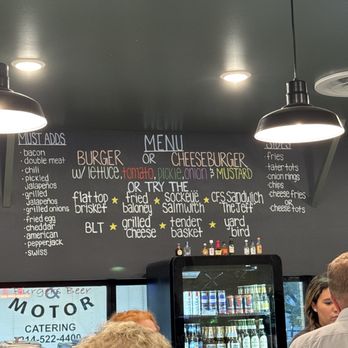 MUST ADDS
• bacon
• double meat
• chili
• pickled
Jalapeños
• grilled
Jalapeños
• grilled onions
• fried egg
• cheddar
• american
• pepperjack
• swiss
MENU
BURGER OR CHEESEBURGER
w/ lettuce, tomato, pickle, onion & MUSTARD
OR TRY THE
flat top brisket ★ fried baloney ★ sockeye salmwitch ★ CFS sandwich the Jeff
BLT ★ grilled cheese ★ tender basket ★ yard bird
SIDES
fries
tater tots
onion rings
chips
cheese fries
OR
cheese tots
Burgers Beer
&
MOTOR
CATERING
214-522-4400